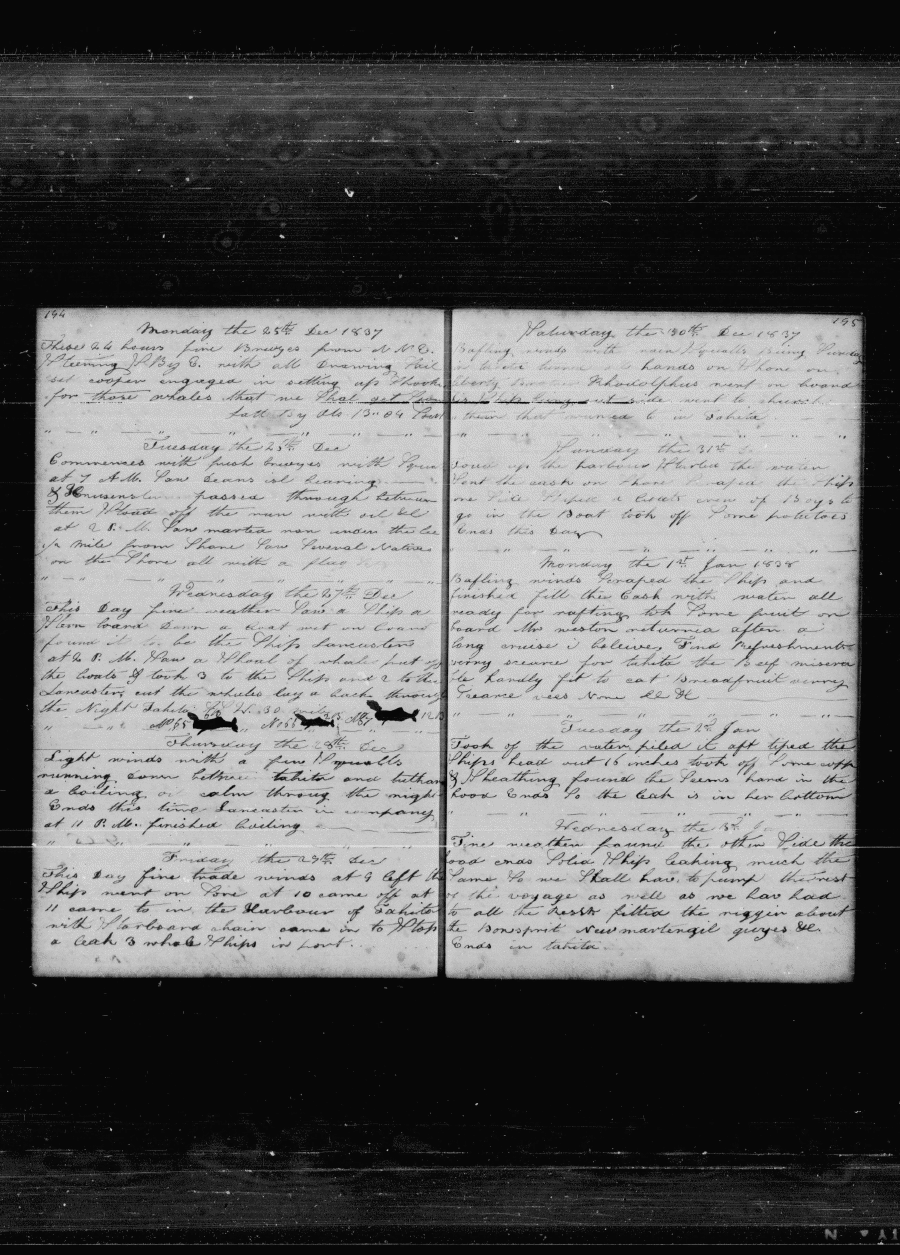 194
Monday the 25th Dec 1837
These 24 hours fine Breezes from N N E.
Steering S By E. with all Drawing Sail
set cooper engaged in setting up Shook
for those whales that we Shal get
Latt By Ob 13" 04
Tuesday the 26th Dec
Commences with fresh breezes with
at 7 A.M. Saw Deans isl bearing
& passed through between
them Stoad off the run with
at 2 P.M. Saw martea non under the lee
1/2 mile from Shore Saw Several Natives
on the Shore all with a flag
Wednesday the 27th Dec
This Day fine weather Saw a Ship a
Stern board Down a boat wet on board
found it to be the Ship Lancaster
at 2 P.M. Saw a Shoal of whale put off
the boats & took 3 to the Ship and 2 to the
Lancaster, cut the whales lay a back through
the Night Tahita W. 30 miles
Thursday the 28th Dec
Light winds with a few Squalls
running down between tahita and
a boiling calm throug the night
Ends this time Lancaster in company
at 11 P.M. finished boiling
Friday the 29th Dec
This Day fine trade winds at 9 left the
Ship went on Sore at 10 came off at
11 came to in the Harbour of Tahita
with Starboard chain came in to Stop
a leak 3 whale Ships in port.
195
Saturday the 30th Dec 1837
Bafling winds with rain Squalls being Sunday
hands on Shore on
liberty Rhodolphus went on board
Ship side went to church
them that wanted to in Tahita
Sunday the 31st
Towd up the harbour Started the water
Sent the cask on Shore Scraped the Ships
one Side Shiped a boats crew of Boys to
go in the Boat took off Some potatoes
Ends this Day
Monday the 1st Jan 1838
Bafling winds Scraped the Ships and
finished fill the Cask with water all
ready for rafting tok Some fruit on
board Mr weston returned after a
long cruise i beleive, Find Refreshments
verry scearce for tahita the Beef misera
ble hardly fit to eat Breadfruit verry
Scearce vees None
Tuesday the 2d Jan
Took of the water, piled it aft tiped the
Ships head out 16 inches took off Some copp
& Sheathing found the Seems hard in the
hood Ends So the leak is in her bottom
Wednesday the 3d
Fine weather found the other Side the
ood ends Solid Ship leaking much the
Same So we Shall have to pump the rest
of the voyage as well as we hav had
to all the Rest fitted the riggin about
the Bowsprit New martengil guyes &c
Ends in tahita